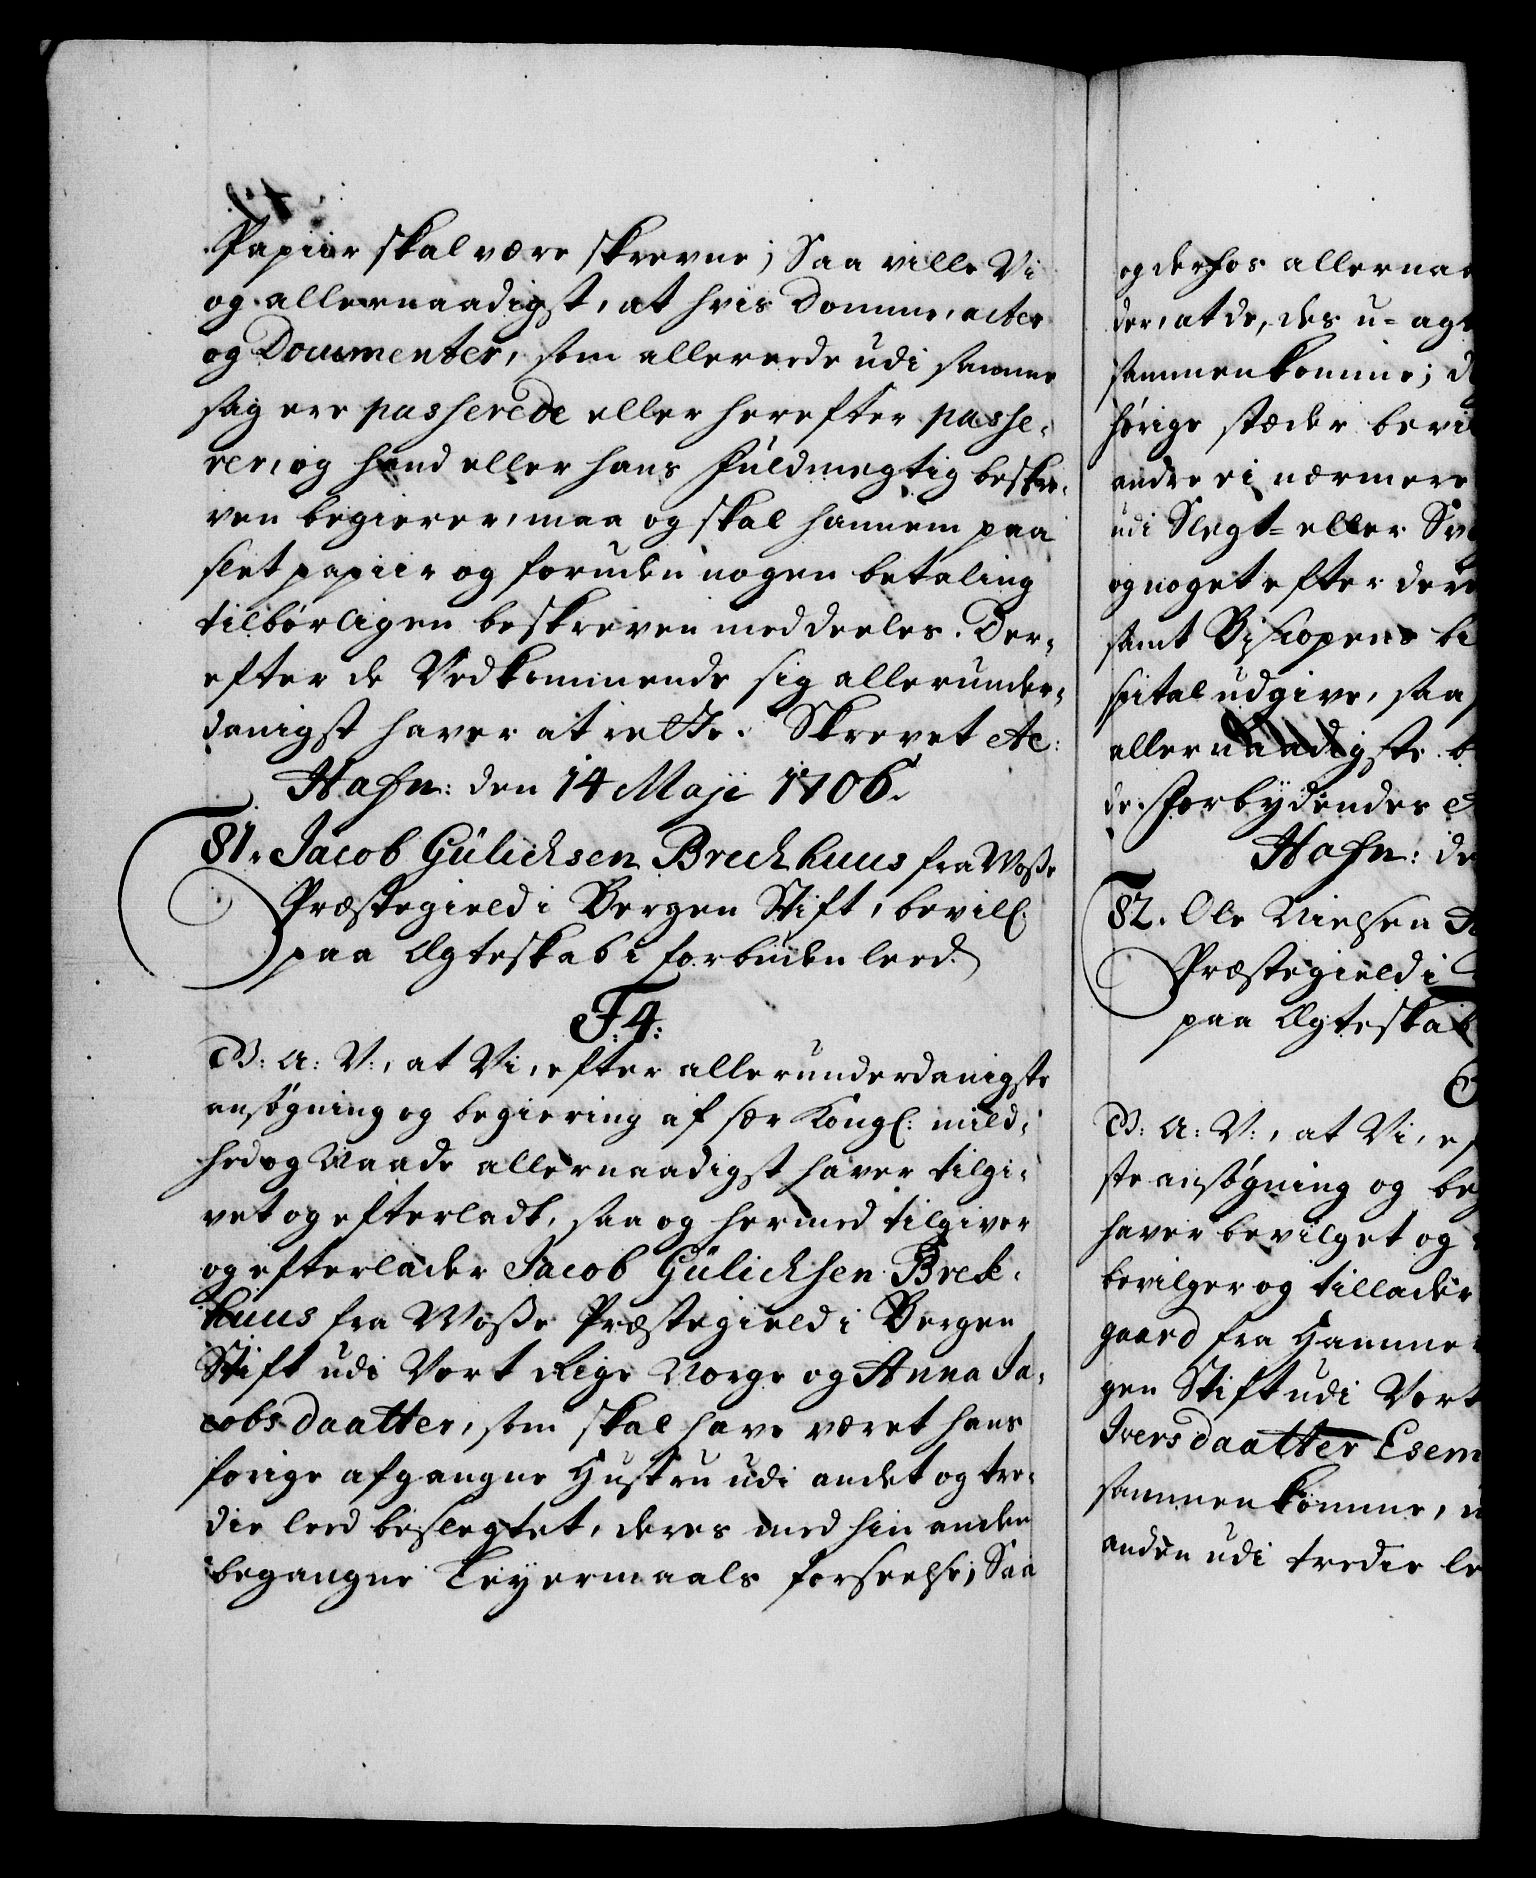 Papiir skal være skrevne; Saa ville Vi
og allernaadigst, at hvis Domme, acter
og Documenter, som allereede udi samme
sag ere passerede eller herefter passe-
rer, og hand eller hans Fuldmegtig beskre-
ven begierer, maa og skal hannem paa
slet papiir og foruden nogen betaling
tilbørligen beskreven meddeeles. Der-
efter de Vedkommende sig allerunder-
danigst haver at rette. Skrevet etc:
Hafn: den 14 Maji 1706.
81. Jacob Gülichsen Brechhuus fra Wosse
Præstegield i Bergen Stift, bevill:
paa Ægteskab i forbuden leed.
F. 4:
G: A: V:, at Vi, efter allerunderdanigste
ansøgning og begiering af sær Kongl: mild-
hed og Naade allernaadigst haver tilgi-
vet og efterladt, saa og hermed tilgiver
og efterlader Jacob Gülichsen Brek-
huus fra Wosse Præstegield i Bergen
Stift udi Vort Rige Norge og Anna Ja-
cobsdaatter, som skal have været hans
forige afgangne Hustru udi andet og tre-
die leed beslegtet, deres med hin anden
begangne Leyermaals forseelse; Saa
og derhos allernaa
der, at de, des u-agt
sammenkomme; d
hørige stæder bevi
andre ei nærmere
udi Slegt- eller Sv
og noget efter dere
samt Biscopens bi
spital udgive, saa
allernaadigste b
de. Forbydendes e
Hafn: de
82. Ole Nielsen
Præstegield i
paa Ægteskab
G: A: V:, at Vi, ef
ste ansøgning og beg
haver bevilget og
bevilger og tillader
gaard fra Hammer
gen Stift udi Vort
Iversdaatter Esem
sammenkomme, u
anden udi tredie le